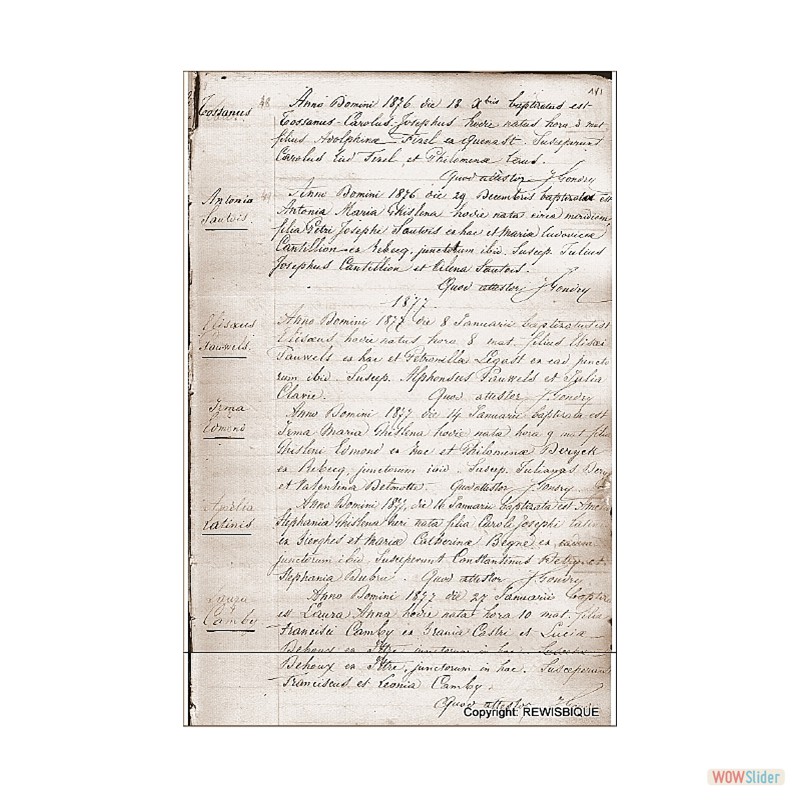 Tossanus
Anno Domini 1876 die 18 Xbris baptizatus est
Tossanus Carolus Josephus hodie natus hora 3 mat
filius Adolphinæ Firel ex Quenast. Susceperunt
Carolus Lud Firel et Philomena
Quod attestor J Gondry
Antonia
Sautois.
Anno Domini 1876 die 29 Decembris baptizata est
Antonia Maria Ghislena hodie nata circa meridiem,
filia Petri Josephi Sautois ex hac et Mariæ Ludovicæ
Cantillion ex Rebecq, junctorum ibid. Suscep. Julius
Josephus Cantillion et Celina Sautois.
Quod attestor J Gondry
1877
Elisæus
Pauwels
Anno Domini 1877 die 8 Januarii baptizatus est
Elisæus hodie natus hora 8 mat. filius Elisæi
Pauwels ex hac et Petronilla Legast ex ead, juncto
rum ibid. Suscep. Alphonsus Pauwels et Julia
Clavie. Quod attestor J. Gondry
Irma
Edmond
Anno Domini 1877 die 14 Januarii baptizata est
Irma Maria Ghislena hodie nata hora 9 mat filia
Ghisleni Edmond ex hac et Philomenæ
ex Rebecq, junctorum ibid. Suscep.
et Valentina Delmotte. Quod attestor J. Gondry
Amelia
Latinis
Anno Domini 1877, die 16 Januarii baptizata est Amelia
Stephania Ghislena heri nata filia Caroli Josephi Latinis
ex Sierghes et Mariæ Catherinæ Begne ex eadem
junctorum ibid. Susceperunt Constantinus et
Stephania Dubru. Quod attestor J. Gondry
Laura
Camby
Anno Domini 1877 die 27 Januarii baptiz
est Laura Anna hodie nata hora 10 mat. filia
Francisci Camby ex et Lucia
Behoux ex Ittre, junctorum in hac.
Behoux ex Ittre, junctorum in hac. Susceperunt
Franciscus et Leonia Camby.
Quod attestor J
Copyright: REWISBIQUE
WOWSlider